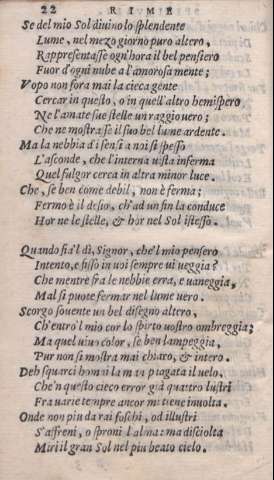 22 RIME
Se del mio Sol diuino lo splendente
Lume, nel mezo giorno puro altero,
Rappresentasse ogn'hora il bel pensiero
Fuor d'ogni nube a l'amorosa mente;
Vopo non fora mai la cieca gente
Cercar in questo, o in quell'altro hemispero
Ne l'amate sue stelle un raggio uero;
Che ne mostrasse il suo bel lume ardente.
Ma la nebbia di sensi a noi si spesso
L'asconde, che l'interna uista inferma
Quel fulgor cerca in altra minor luce.
Che, se ben come debil, non è ferma;
Fermo è il desir, ch'ad un fin la conduce
Hor ne le stelle, & hor nel Sol istesso.
Quando fia'l dì, Signor, che'l mio pensero
Intento, e fisso in uoi sempre ui ueggia?
Che mentre fra le nebbie erra, e uaneggia,
Mal si puote fermar nel lume uero.
Scorgo souente un bel disegno altero,
Ch'entro'l mio cor lo spirto uostro ombreggia;
Ma quel uiuo color, se ben lampeggia,
Pur non si mostra mai chiaro, & intero.
Deh squarci homai la man piagata il uelo,
Che'n questo cieco error già quattro lustri
Fra uarie tempre ancor mi tiene inuolta.
Onde non piu da rai foschi, od illustri
S'affreni, o sproni l'alma: ma disciolta
Miri il gran Sol nel piu beato cielo.